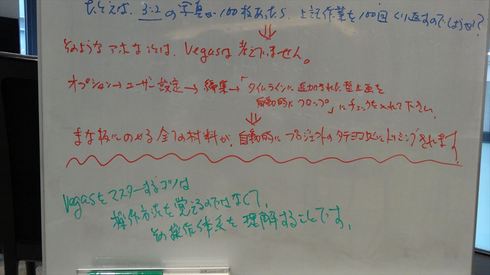 たとえば、3:2の写真が100枚あったら、上記作業を100回くり返すのでしょうか?
そのようなアホなことは、Vegasは考えていません。
オプション→ユーザー設定→編集→「タイムラインに追加された静止画を
自動的にクロップ」にチェックを入れて下さい。
まな板にのせる全ての材料が、自動的にプロジェクトのタテヨコ比にトリミングされます
Vegasをマスターするコツは
操作方法を覚えるのではなくて、
その操作体系を理解することです。